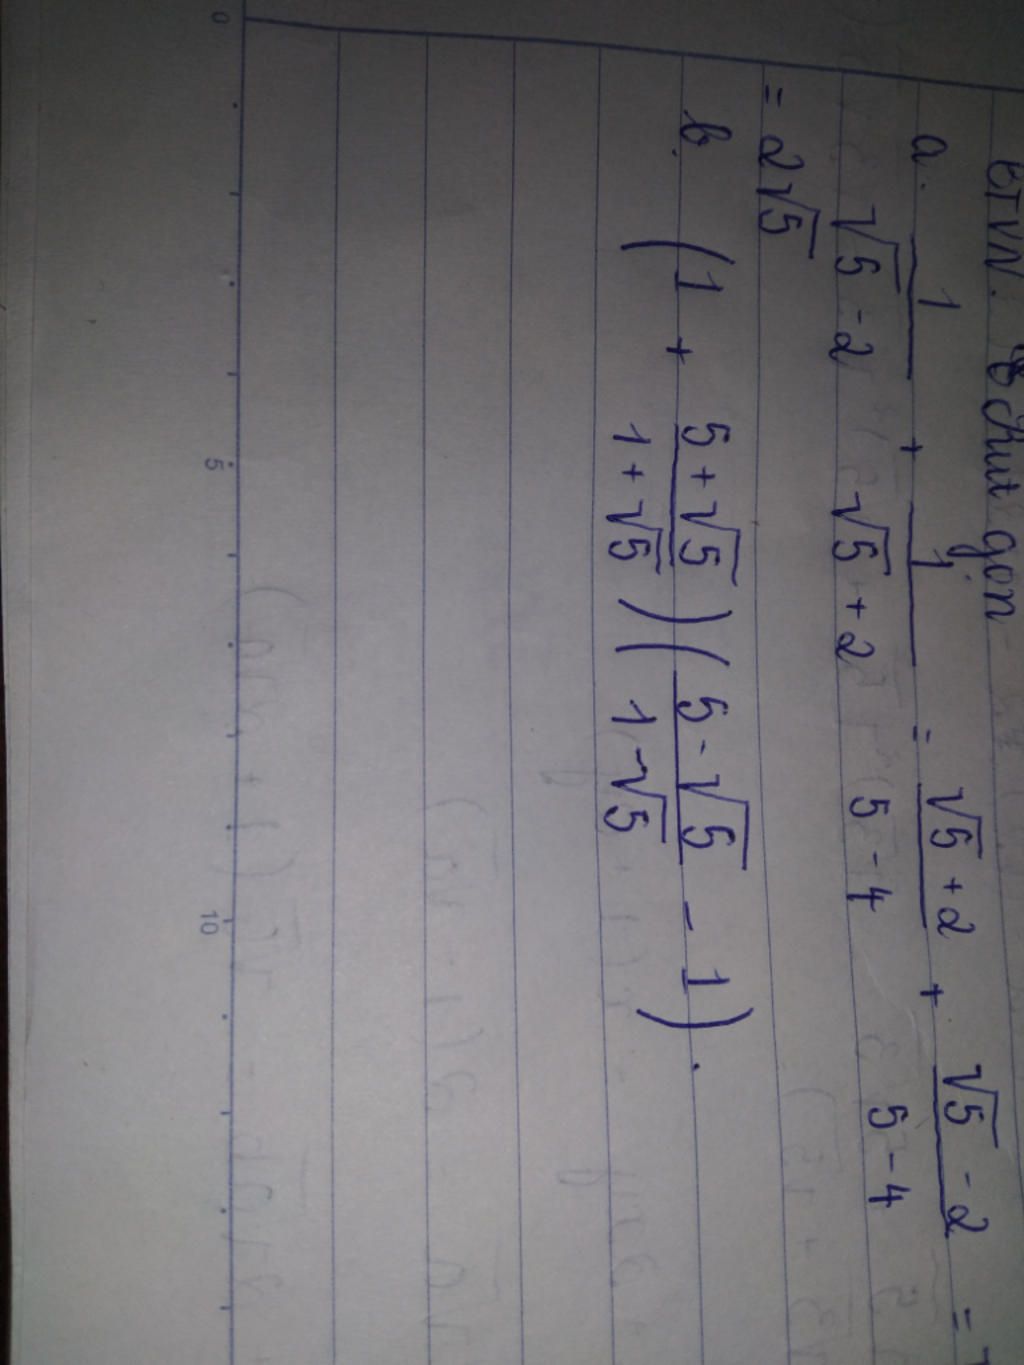 BTVN. Rút gọn
a. \frac{1}{\sqrt{5}-2} + \frac{1}{\sqrt{5}+2} = \frac{\sqrt{5}+2}{5-4} + \frac{\sqrt{5}-2}{5-4} =
= 2\sqrt{5}
b. (1 + \frac{5+\sqrt{5}}{1+\sqrt{5}})(\frac{5-\sqrt{5}}{1-\sqrt{5}} - 1).
0 5 10